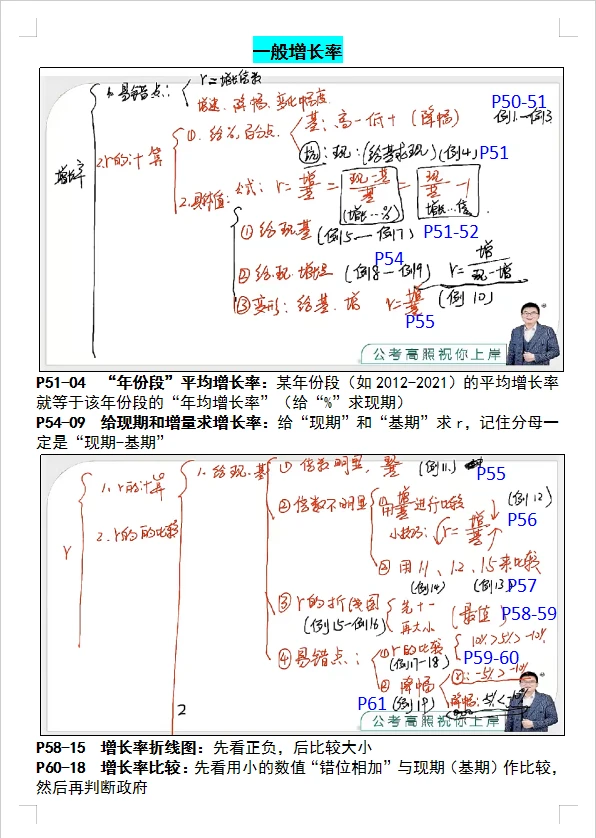 一般增长率
r=增长倍数
1.易错点：
增速、降幅、变化幅度
P50-51
例1.—例3
增长率
2.r的计算
①.给%,百分点.
基：高-低+（降幅）
现：(给基求现)(例4)
P51
2.具体值：公式：r=增/基=现-基/基=现/基-1
(增长…%)
增长…倍
①给现基(例5—例7)
P51-52
P54
②给现.增量(例8—例9) r=增/现-增
③变形：给基.增 r=增/基(例10)
P55
公考高照祝你上岸
P51-04 “年份段”平均增长率：某年份段（如2012-2021）的平均增长率
就等于该年份段的“年均增长率”（给“%”求现期）
P54-09 给现期和增量求增长率：给“现期”和“基期”求r，记住分母一
定是“现期-基期”
r
1.r的计算
2.r的的比较
1.给现.基
①倍数明显，整(例11.)
P55
②倍数不明显
①用增/基进行比较
(例12)
小技巧：r=增/基
P56
②用1.1、1.2、1.5来比较
(例14) (例13)
P57
③r的折线图
(例15—例16)
先十一
再大小
(最值)
P58-59
④易错点：
①r的比较
(例17-18)
10%>5%>-10%
P59-60
②降幅
(例19)
P61
r：-5%>-10%
降幅：-5%<-10%
2
公考高照祝你上岸
P58-15 增长率折线图：先看正负，后比较大小
P60-18 增长率比较：先看用小的数值“错位相加”与现期（基期）作比较，
然后再判断政府